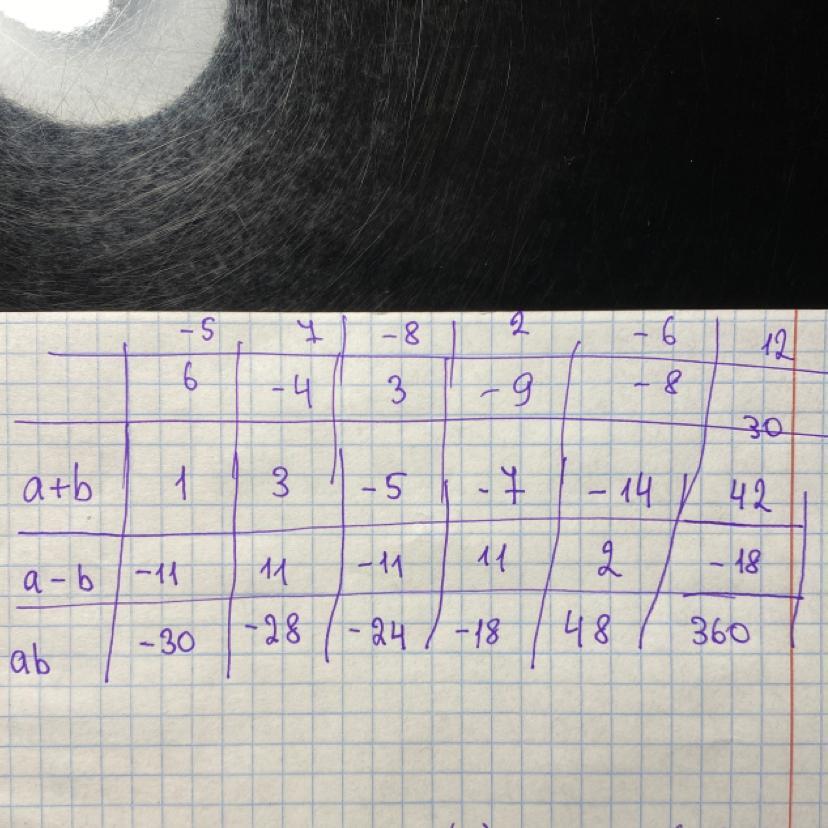 -5 7 -8 2 -6 12
6 -4 3 -9 -8 30
a+b 1 3 -5 -7 -14 42
a-b -11 11 -11 11 2 -18
ab -30 -28 -24 -18 48 360